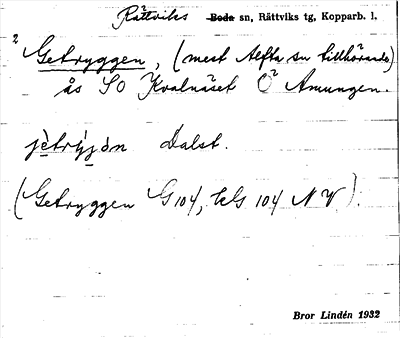 Rättviks Boda sn, Rättviks tg, Kopparb. l.
2 Getryggen, (mest Alfta sn tillhörande)
ås SO Kvalnäset O² Amungen.
jètrýjọn Dalst.
(Getryggen G 104, kG 104 NV).
Bror Lindén 1932